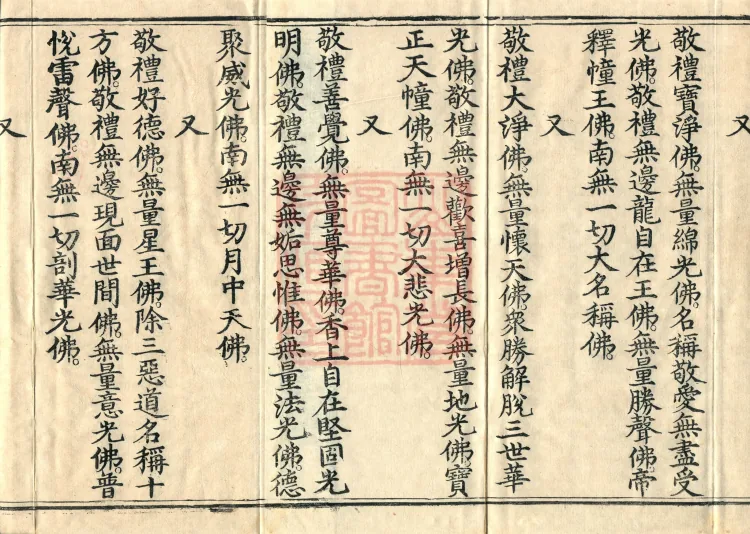 又
敬禮寶淨佛。無量綿光佛。名稱敬愛無盡受
光佛。敬禮無邊龍自在王佛。無量勝聲佛。帝
釋幢王佛。南無一切大名稱佛。
又
敬禮大淨佛。無量懷天佛。衆勝解脫三世華
光佛。敬禮無邊歡喜增長佛。無量地光佛。寶
正天幢佛。南無一切大悲光佛。
又
敬禮善覺佛。無量尊華佛。香上自在堅固光
明佛。敬禮無邊無垢思惟佛。無量法光佛。德
聚威光佛。南無一切月中天佛。
又
敬禮好德佛。無量星王佛。除三惡道名稱十
方佛。敬禮無邊現面世間佛。無量意光佛。普
悅雷聲佛。南無一切剖華光佛。
又